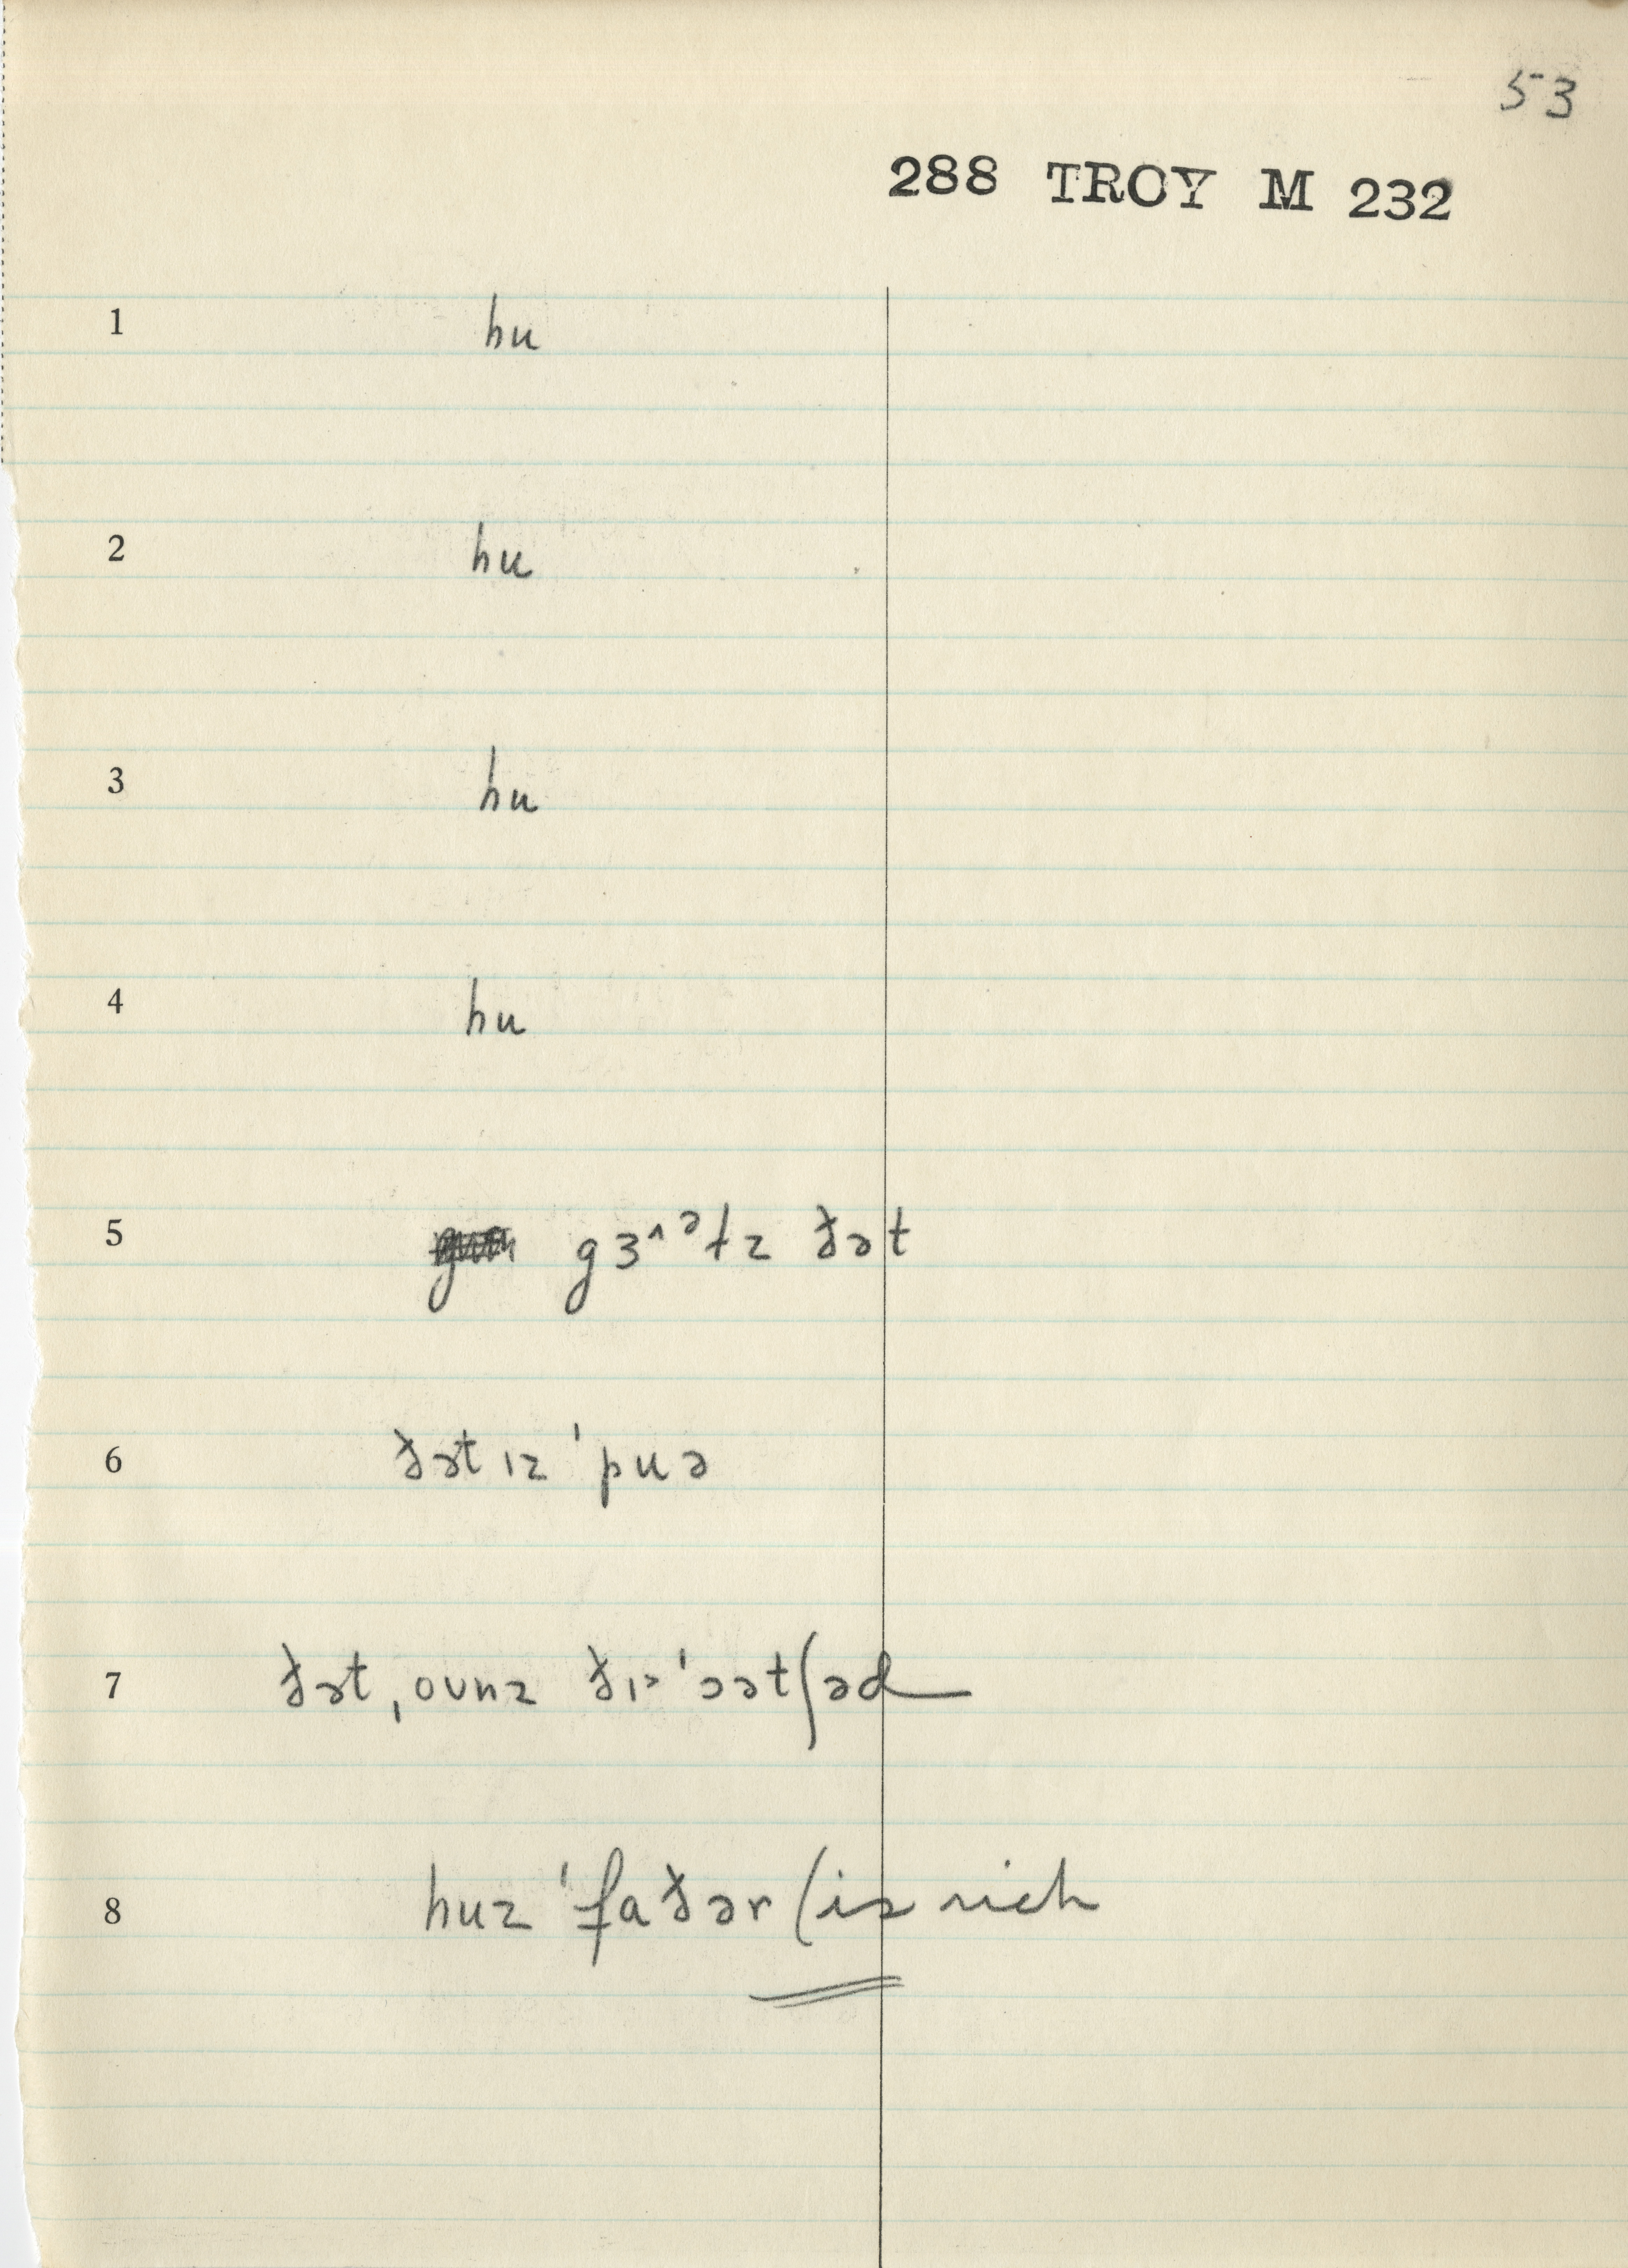 53
288 TROY M 232
1 hu
2 hu
3 hu
4 hu
5 gɜ˄ᵊɫz ðət
6 ðət ɪz ˈpuə
7 ðət ˌoʊnz ðɪ˃ ˈɔətʃəd
8 huz ˈfaðər (is rich